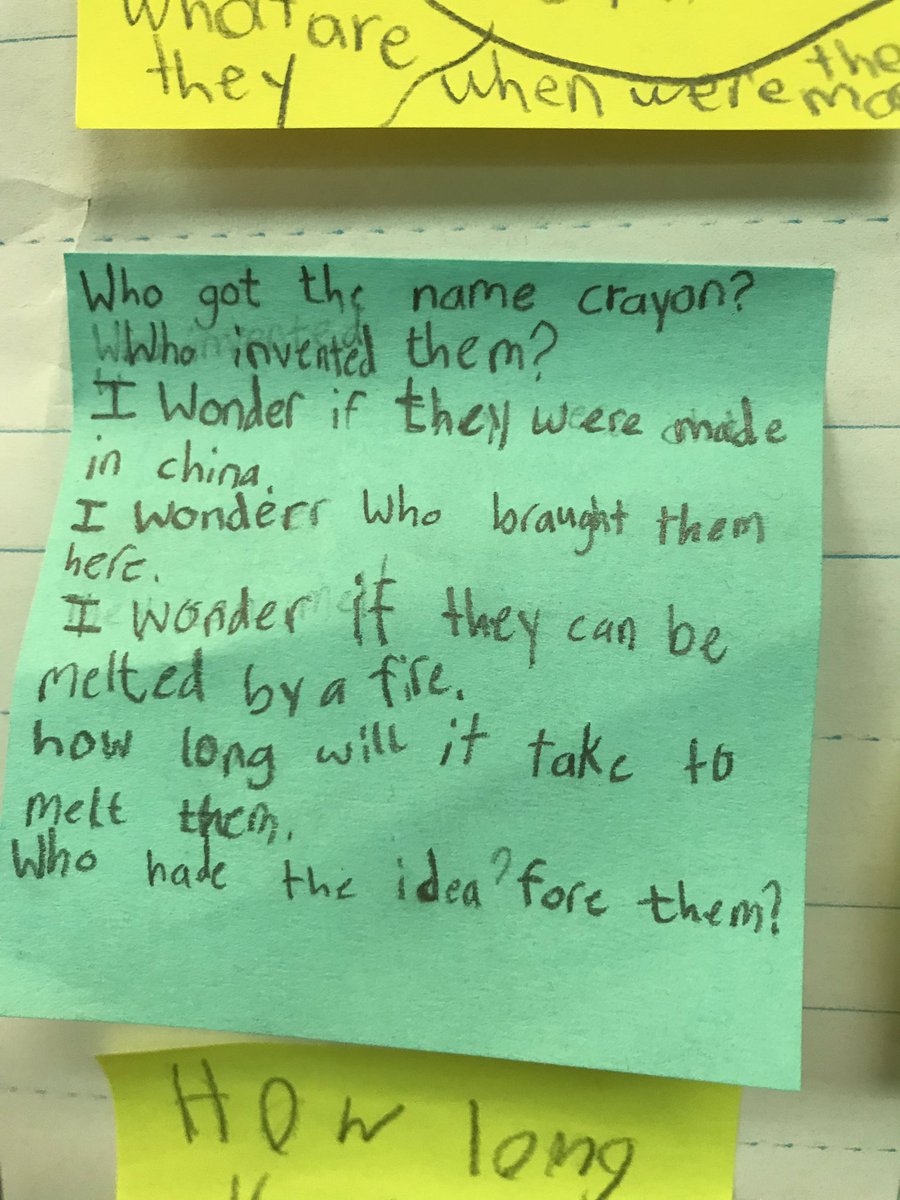 what are
they when were the
Who got the name crayon?
Who invented them?
I Wonder if they were made
in china.
I Wonderr Who braught them
here.
I wonder if they can be
melted by a fire.
how long will it take to
melt them.
Who hade the idea? fore them?
How long